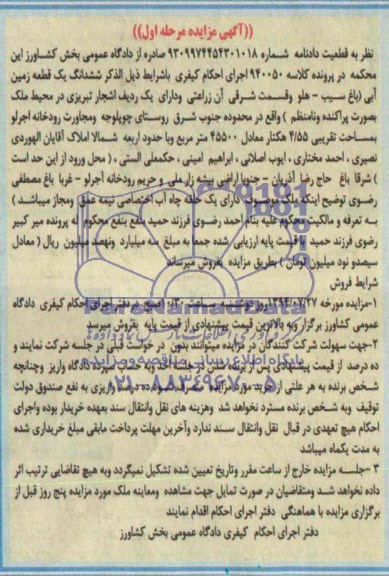 ((آگهی مزایده مرحله اول))
نظر به قطعیت دادنامه شماره ۹۳۰۹۹۷۴۴۵۴۳۰۱۰۱۸ صادره از دادگاه عمومی بخش کشاورز این
محکمه در پرونده کلاسه ۹۴۰۰۵۰ اجرای احکام کیفری باشرایط ذیل الذکر ششدانگ یک قطعه زمین
آبی (باغ سیب - هلو وقسمت شرقی آن زراعتی ودارای یک ردیف اشجار تبریزی در محیط ملک
بصورت پراکنده ونامنظم ) واقع در محدوده جنوب شرق روستای چوپلوجه ومجاورت رودخانه آجرلو
بمساحت تقریبی ۴/۵۵ هکتار معادل ۴۵۵۰۰ متر مربع وبا حدود اربعه شمالا املاک آقایان الهوردی
نصیری ، احمد مختاری ، ایوب اصلانی ، ابراهیم امینی ، حکمعلی الستی ، ( محل ورود از این حد است
) شرقا باغ حاج رضا آذریان - جنوبا اراضی بیشه زار ملی و حریم رودخانه آجرلو - غربا باغ مصطفی
رضوی توضیح اینکه ملک موصوف دارای یک حلقه چاه آب اختصاصی نیمه عمق ومجاز میباشد )
به تعرفه و مالکیت محکوم علیه بنام احمد رضوی فرزند حمید بنفع محکوم له پرونده میر کبیر
رضوی فرزند حمید با قیمت پایه ارزیابی شده جمعا به مبلغ سه میلیارد ونهصد میلیون ریال ( معادل
سیصدو نود میلیون تومان ) بطریق مزایده بفروش میرساند
شرایط فروش
۱-مزایده مورخه ۱۳۹۴/۰۷/۲۷ روز دوشنبه ساعت ۱۰:۳۰ صبح در دفتر اجرای احکام کیفری دادگاه
عمومی کشاورز برگزار وبه بالاترین قیمت پیشنهادی از قیمت پایه بفروش میرسد
۲-جهت سهولت شرکت کنندگان در مزایده میتوانند بدون در خواست قبلی در جلسه شرکت نمایند و
ده درصد از قیمت پیشنهادی پس از برنده شدن در جلسه اخذ وبه حساب سپرده دادگاه واریز وچنانچه
شخص برنده به هر علتی از خرید مورد مزایده انصراف نموده درصد واریزی به نفع صندوق دولت
توقیف وبه شخص برنده مسترد نخواهد شد وهزینه های نقل وانتقال سند بعهده خریدار بوده واجرای
احکام هیچ تعهدی در قبال نقل وانتقال سند ندارد وآخرین مهلت پرداخت مابقی مبلغ خریداری شده
به مدت یکماه میباشد
۳ -جلسه مزایده خارج از ساعت مقرر وتاریخ تعیین شده تشکیل نمیگردد وبه هیچ تقاضایی ترتیب اثر
داده نخواهد شد ومتقاضیان در صورت تمایل جهت مشاهده ومعاینه ملک مورد مزایده پنج روز قبل از
برگزاری مزایده با هماهنگی دفتر اجرای احکام اقدام نمایند
دفتر اجرای احکام کیفری دادگاه عمومی بخش کشاورز
ParsNamadData
پایگاه اطلاع رسانی مناقصه و مزایده
۰۲۱-۸۸۳۴۹۶۷۰-۵